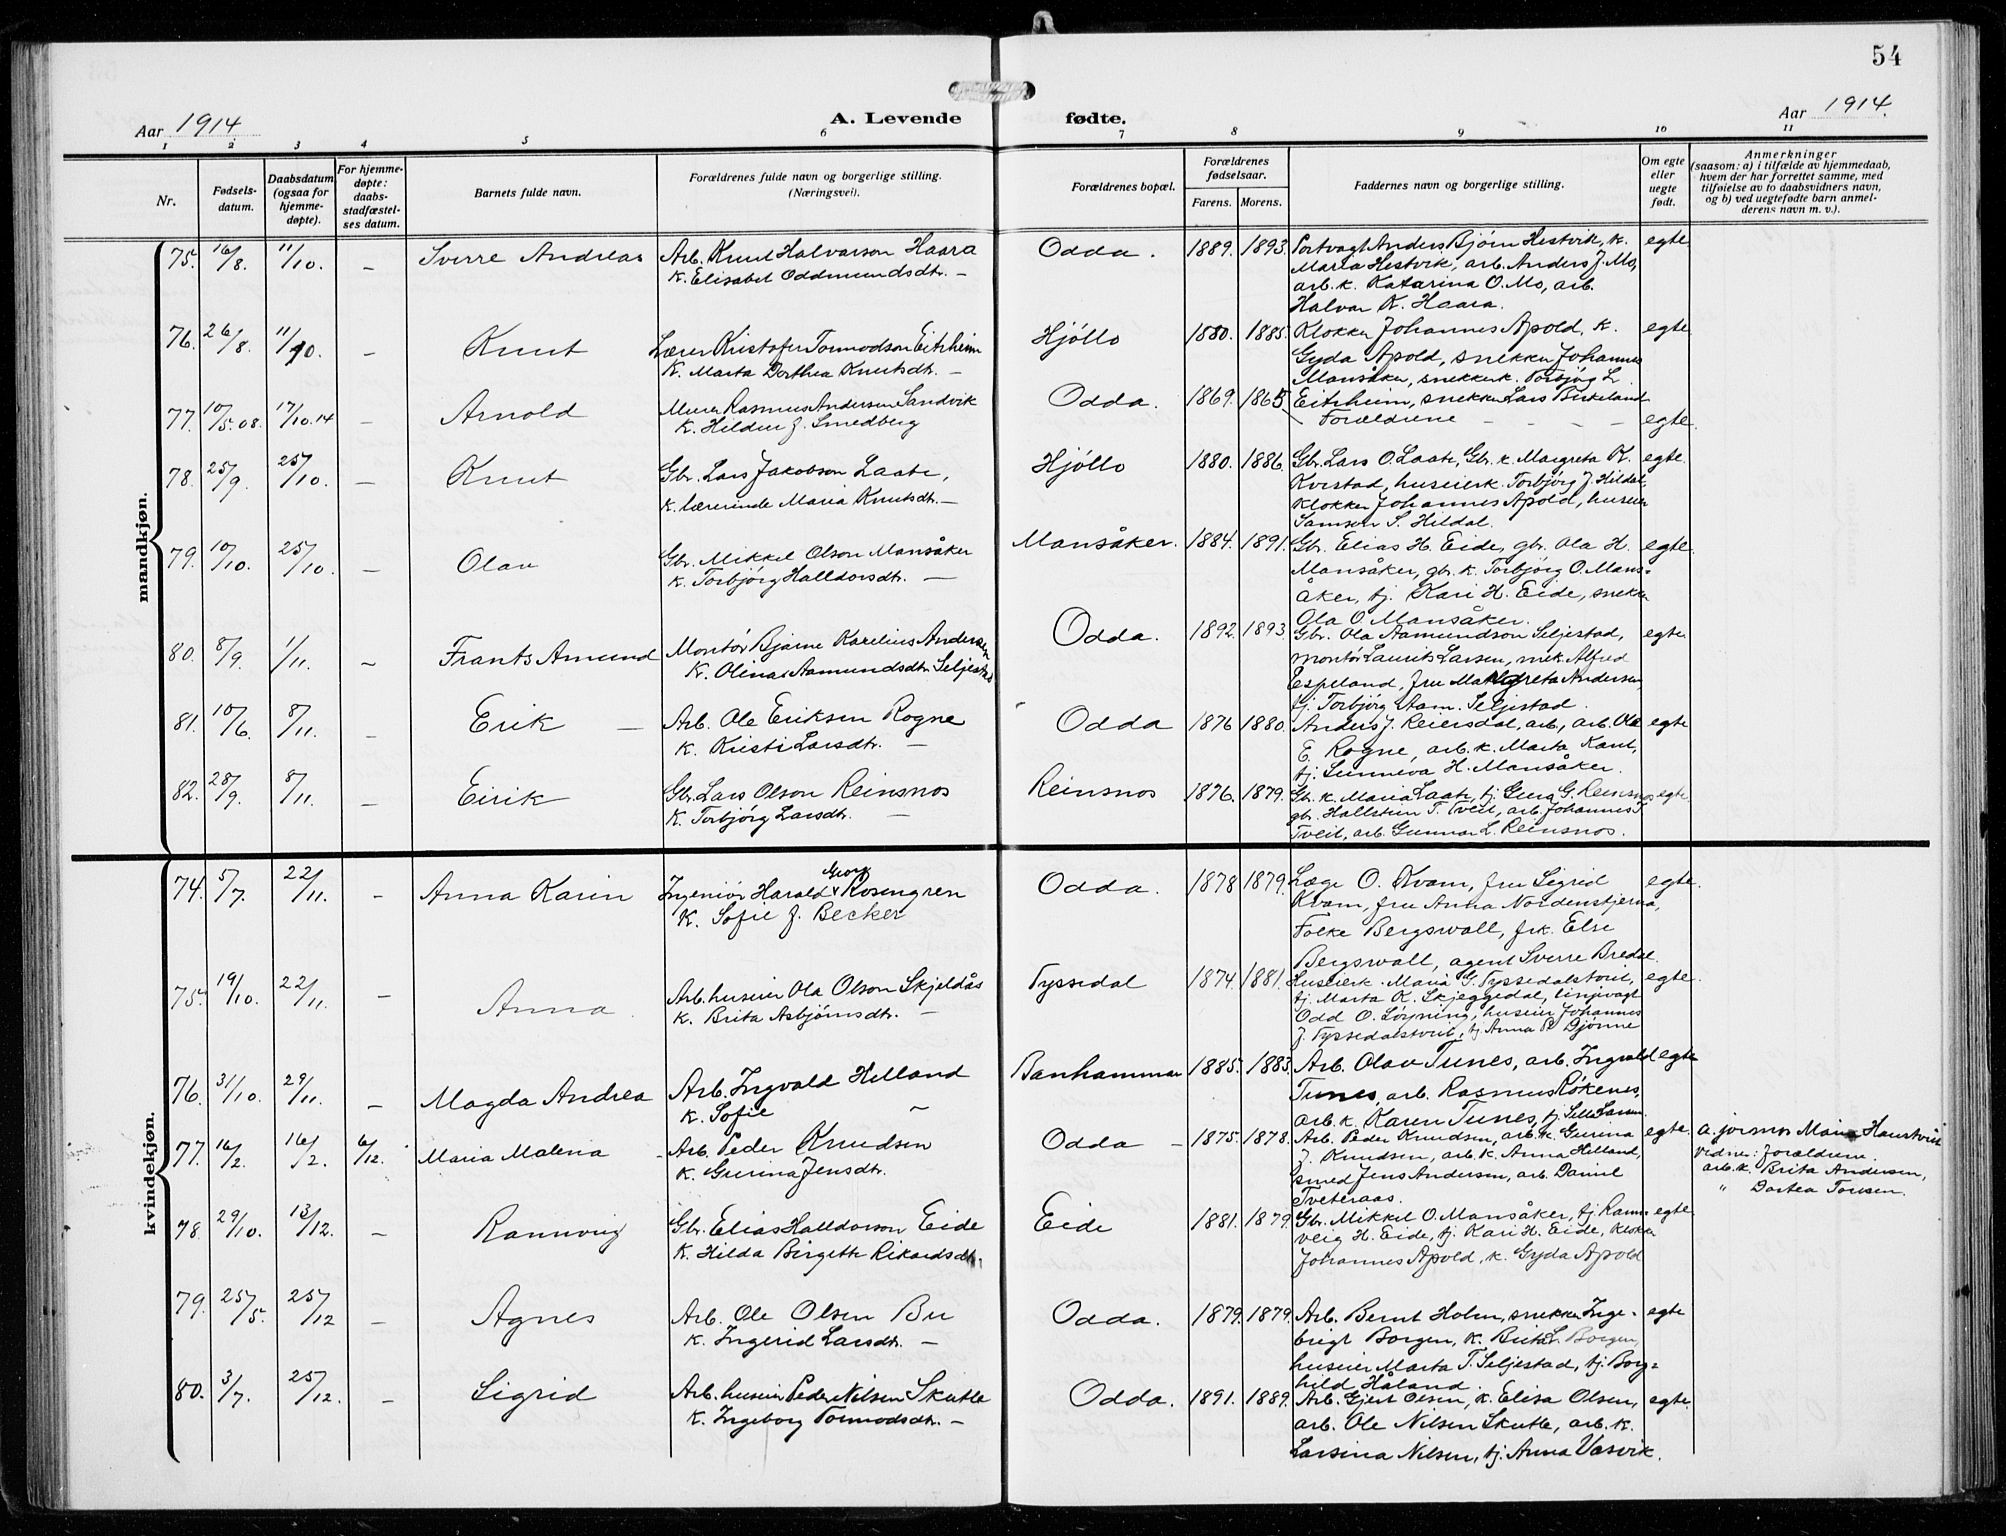 54
Aar 1914
A. Levende fødte.
Aar 1914.
1 2 3 4 5 6 7 8 9 10 11
Nr.
Fødsels-datum.
Daabsdatum (ogsaa for hjemme-døpte).
For hjemme-døpte: daabs-stadfæstel-ses datum.
Barnets fulde navn.
Forældrenes fulde navn og borgerlige stilling. (Næringsvei).
Forældrenes bopæl.
Forældrenes fødselsaar.
Farens. Morens.
Faddernes navn og borgerlige stilling.
Om egte eller uegte født.
Anmerkninger
(saasom: a) i tilfælde av hjemmedaab,
hvem der har forrettet samme, med
tilføielse av to daabsvidners navn,
og b) ved uegtefødte barn anmel-
derens navn m. v.).
mandkjøn.
75. 16/8. 11/10. – Sverre Andreas Arb. Knut Halvarson Haara Odda. 1889. 1893. Portvagt Anders Bjørn Hestvik, k. egte
k. Elisabet Oddmundsdtr. – Maria Hestvik, arb. Anders J. Mo,
arb. k. Katarina O. Mo, arb.
Halvar K. Haara.
76. 26/8. 11/10. – Knut Lærer Kristofer Tormodson Eitrheim Hjøllo 1880. 1885. Klokker Johannes Apold, k. egte
k. Marta Dorthea Knutsdtr. – Gyda Apold, snekker Johannes
Mansåker, snekkerk. Torbjøg L.
Eitrheim, snekker Lars Birkeland
77. 10/5.08. 17/10.14 – Arnold Murer Rasmus Andersen Sandvik Odda. 1869. 1865
k. Hildur f. Smedberg Forældrene – – – – egte.
78. 25/9. 25/10. – Knut Gbr. Lars Jakobson Laate, Hjøllo 1880. 1886. Gbr. Lars O. Laate, Gbr. k. Margreta K. egte.
k. lærerinde Maria Knutsdtr. – Kvestad, huseierk. Torbjørg J. Hildal,
klokker Johannes Apold, huseier
Samson S. Hildal.
79. 10/10. 25/10. – Olav Gbr. Mikkel Olson Mansåker Mansåker. 1884. 1891. Gbr. Elias H. Eide, gbr. Ola H. egte
k. Torbjørg Halldorsdtr. – Mansåker, gbr. k. Torbjørg O. Mans-
åker, tj. Kari H. Eide, snekker
Ola O. Mansåker.
80. 8/9. 1/11. – Frants Amund Montør Bjarne Karelius Andersen Odda. 1892. 1893. Gbr. Ola Aamundson Seljestad, egte
k. Olina Aamundsdtr. Seljestad montør Laurits Larsen, mek. Alfred
Espeland, fru Margreta Andersen,
tj. Torbjørg Aam. Seljestad.
81. 10/6. 8/11. – Erik – Arb. Ole Eriksen Rogne Odda 1876 1880. Anders J. Reiersdal, arb., arb. Ole egte
k. Kristi Larsdtr. – E. Rogne, arb. k. Marta Kant,
tj. Sunneva H. Mansåker.
82. 28/9. 8/11. – Eirik Gbr. Lars Olson Reinsnos Reinsnos 1876. 1879. Gbr. k. Maria Laate, tj. Guro G. Reinsnos egte
k. Torbjørg Larsdtr. – gbr. Hallstein T. Tveit, arb. Johannes T.
Tveit, arb. Gunnar L. Reinsnos.
kvindekjøn.
74. 5/7. 22/11. – Anna Karin Ingeniør Harald Georg Rosengren Odda. 1878 1879. Læge O. Kvam, fru Sigrid egte.
k. Sofie f. Becker Kvam, fru Anna Nordenstjerna,
Folke Bergswall, frk. Else
Bergswall, agent Sverre Bredal.
75. 19/10. 22/11. – Anna Arb. huseier Ola Olson Skjeldås Tyssedal 1874. 1881. Huseierk. Maria G. Tyssedalstveit, egte.
k. Brita Asbjørnsdtr. – tj. Marta K. Skjeggedal, linjevagt
Odd O. Løyning, huseier Johannes
J. Tyssedalstveit, tj. Anna R. Djønne
76. 31/10. 29/11. – Magda Andrea Arb. Ingvald Helland Banhammar 1885. 1883. Arb. Olav Tunes, arb. Ingvald egte
k. Sofie – Tunes, arb. Rasmus Røkenes,
arb. k. Karen Tunes, tj. Silla Larsen.
77. 16/2. 16/2. 6/12. Maria Malena – Arb. Peder Knudsen Odda – 1875. 1878. Arb. Peder Knudsen, arb. k. Gurina egte. a. jormor Maria
k. Gurina Jensdtr. J. Knudsen, arb. k. Anna Helland, Vidner: Forældrene.
smed Jens Andersen, arb. Daniel arb. k. Brita Andersen,
Tveteraas. " Dortea Tonsen.
78. 29/10. 13/12. – Rannveig Gbr. Elias Halldorson Eide Eide 1881. 1879. Gbr. Mikkel O. Mansåker, tj. Rann- egte
k. Hilda Birgette Rikardsdtr. veig H. Eide, tj. Kari H. Eide, klokker
Johannes Apold, k. Gyda Apold
79. 25/5. 25/12 – Agnes Arb. Ole Olsen Bu Odda. 1879. 1879. Arb. Bernt Holm, snekker Inge- egte
k. Ingerid Larsdtr. – brigt Borgen, k. Brita L. Borgen,
huseier Marta T. Seljestad, tj. Borg-
hild Håland.
80. 3/7. 25/12. – Sigrid Arb. huseier Peder Nilsen Skutle Odda. 1891. 1889. Arb. Gjert Olsen, k. Elisa Olsen, egte.
k. Ingeborg Tormodsdtr. – arb. Ole Nilsen Skutle, arb. k.
Larsina Nilsen, tj. Anna Vasvik.